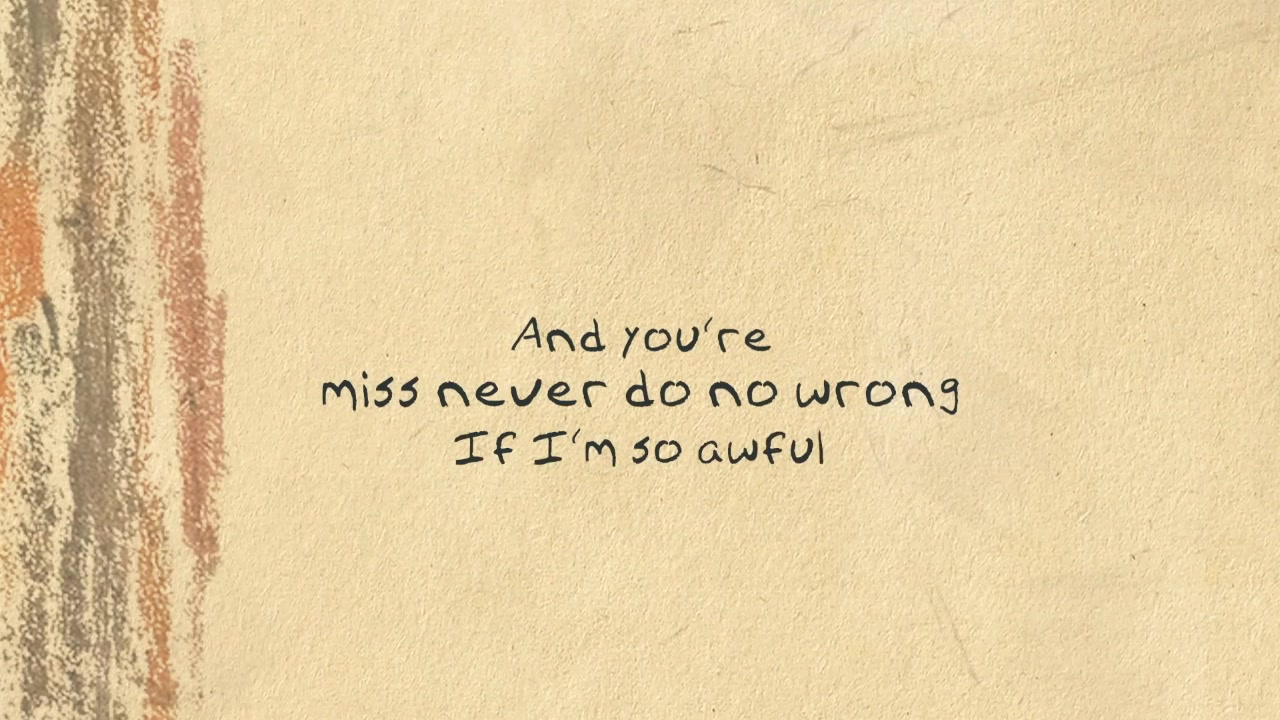 And you're
miss never do no wrong
If I'm so awful